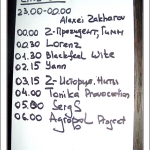 23.00-00.00
Alexei Zakharov
00.00 Z-Президент, Гимн
00.30 Lorenz
01.30 Blackfeel Wite
02.15 Yann
03.15 Z-История, Нить
04.00 Tonika Provocation
05.00 SergS
06.00 Agropol Project